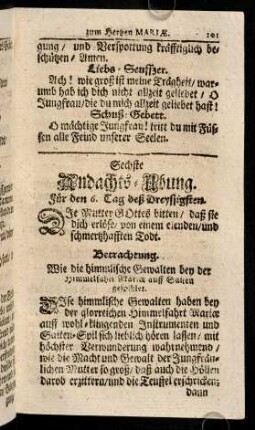 zum Hertzen MARIÆ. 101
gung / und Verspottung kräfftiglich be-
schützen / Amen.
Liebs-Seuffzer.
Ach! wie groß ist meine Trägheit / war-
umb hab ich dich nicht allzeit geliebet / O
Jungfrau / die du mich allzeit geliebet hast!
Schuß-Gebett.
O mächtige Jungfrau! tritt du mit Füs-
sen alle Feind unserer Seelen.
Sechste
Andachts-Ubung.
Für den 6. Tag deß Dreysigsten.
Die Mutter GOttes bitten / daß sie
dich erlöse / von einem elenden / und
schmertzhafften Todt.
Betrachtung.
Wie die himmlische Gewalten bey der
Himmelfahrt Mariæ auff Saiten
gespihlet.
Dise himmlische Gewalten haben bey
der glorreichen Himmelfahrt Mariæ
auff wohl-klingenden Instrumenten und
Saiten-Spil sich lieblich hören lassen / mit
höchster Verwunderung wahrnehmend /
wie die Macht und Gewalt der Jungfräu-
lichen Mutter so groß / daß auch die Höllen
darob erzittern / und die Teuffel erschrecken;
dann